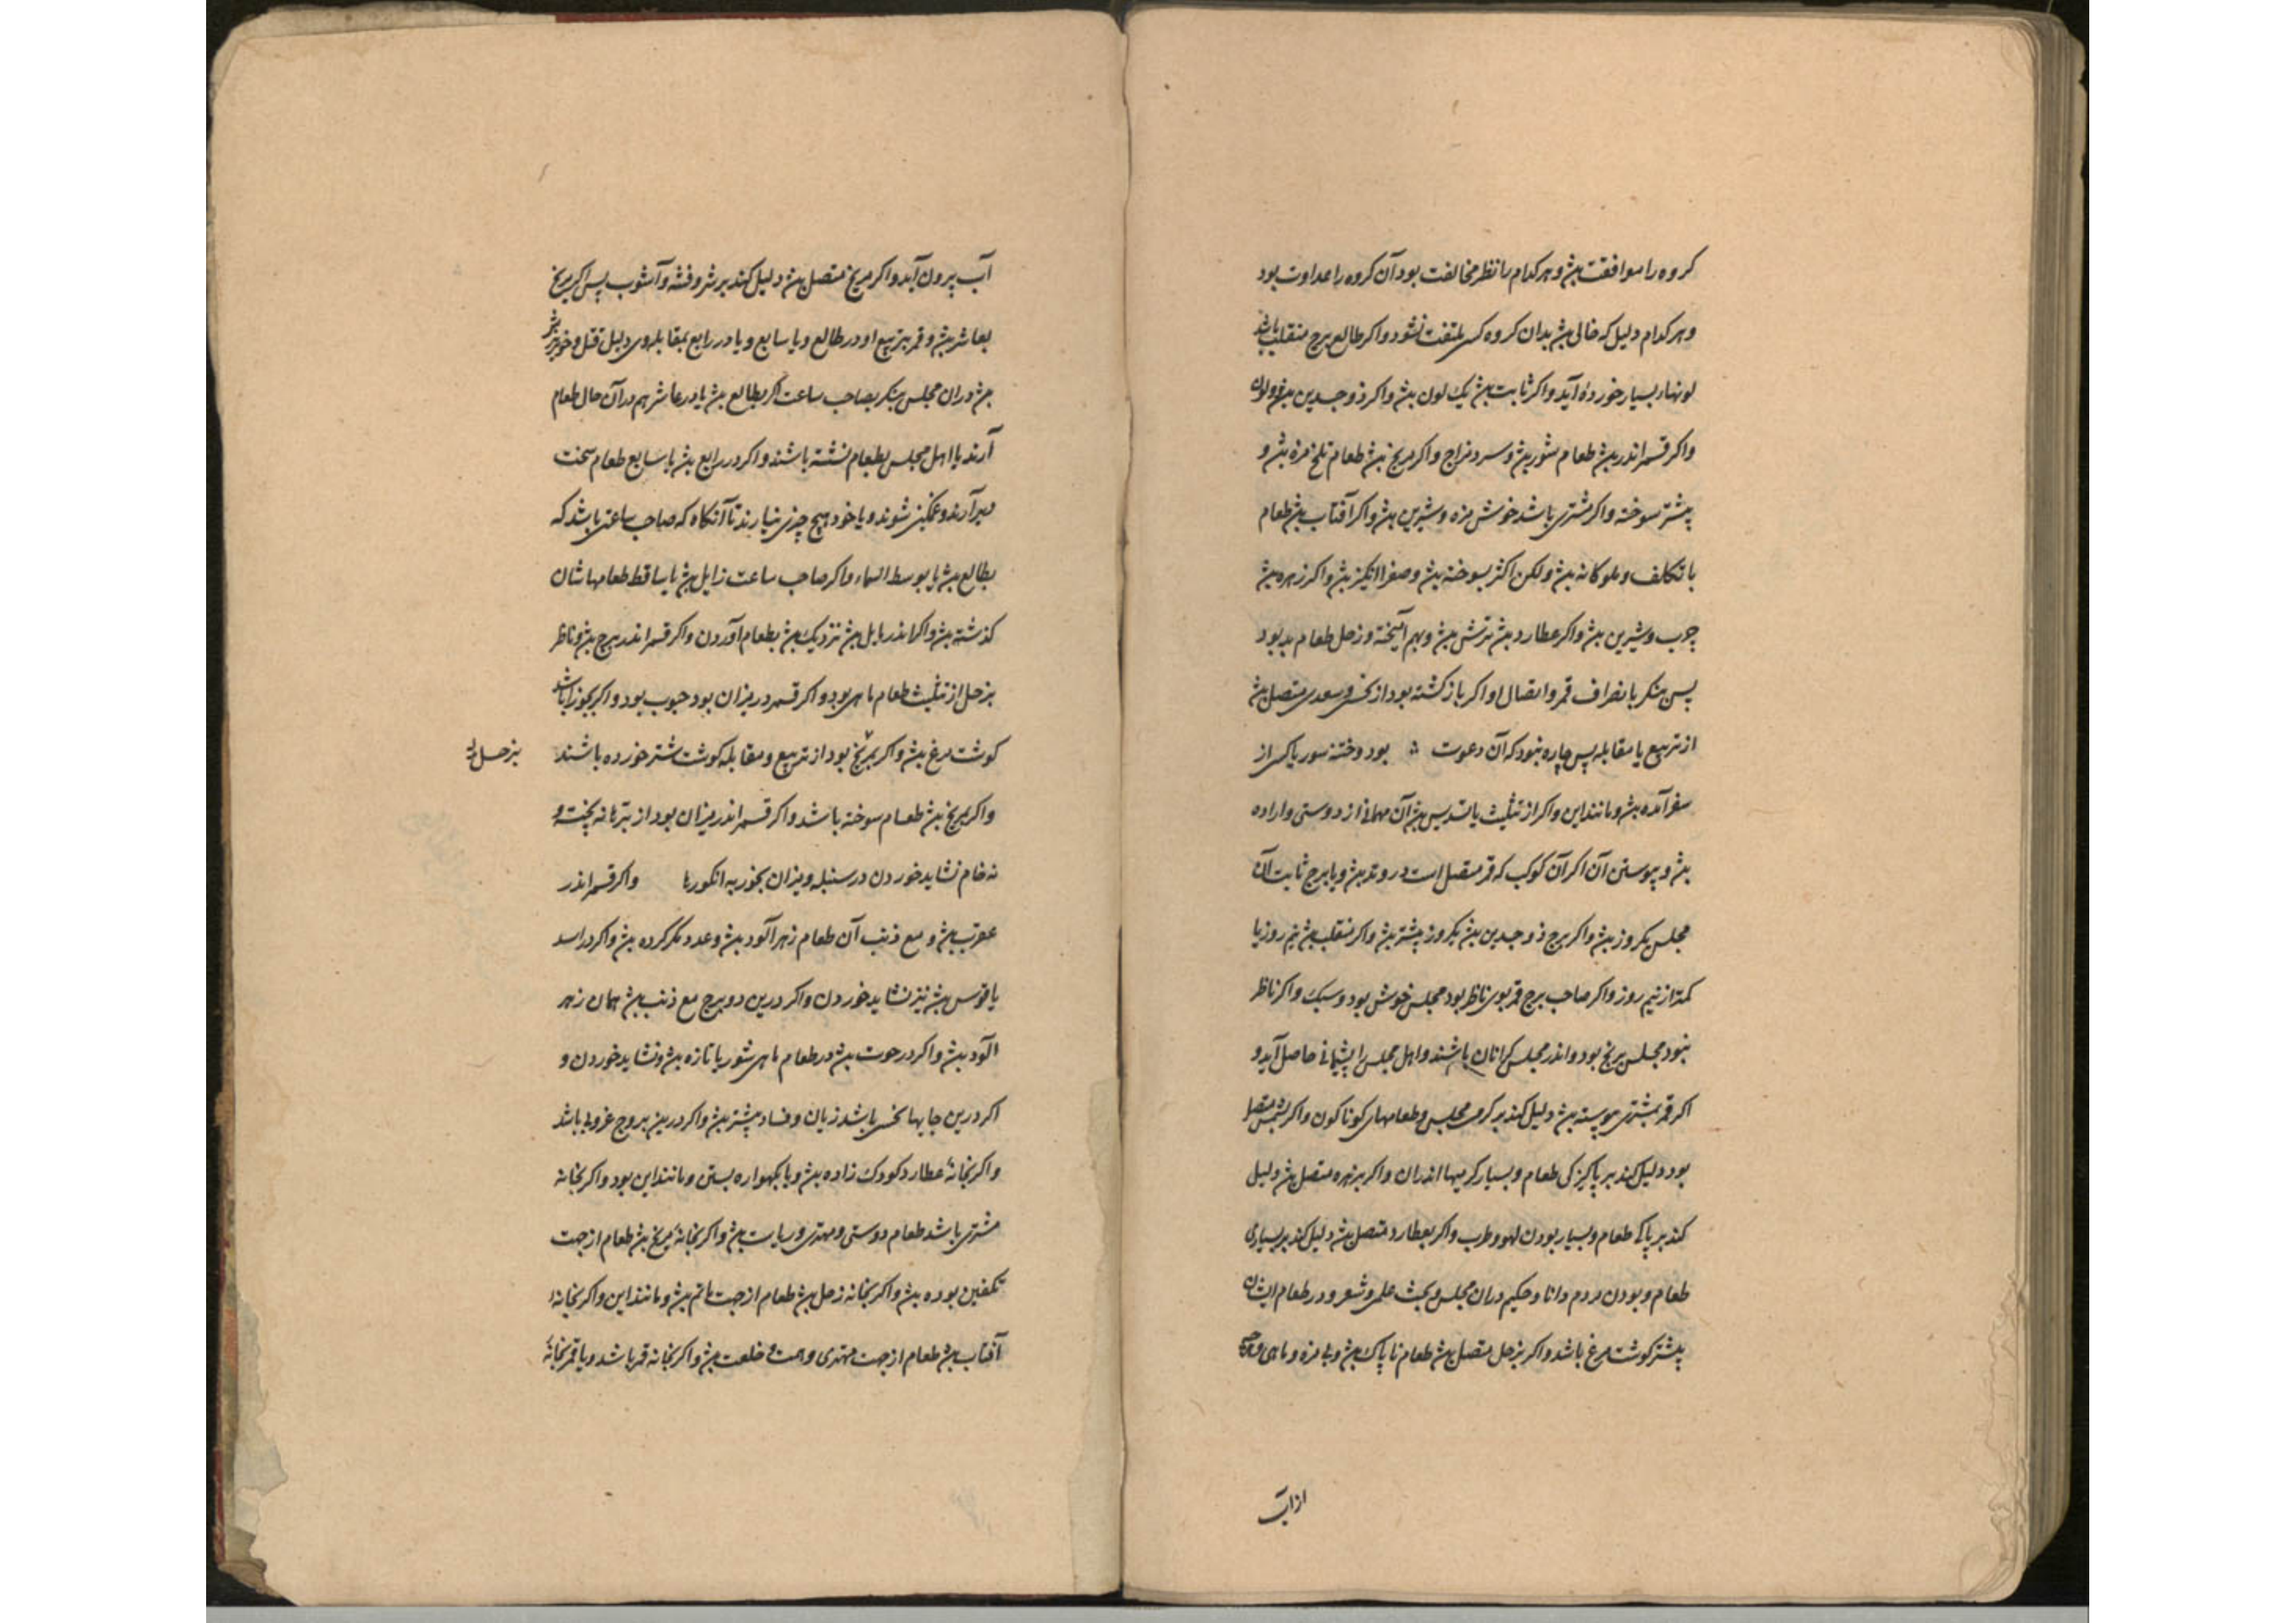 کروه را موافقت بش و هر کدام را نظر مخالفت بود آن کروه را عداوت بود
و هر کدام دلیل که خالی بش بدان کروه کس ملتفت نشود و اکر طالع برج منقلب باشد
لونهاء بسیار خورده آید و اکر ثابت بش یک لون بش و اکر ذوجسدین بش دو لون
و اکر قمر اندر بش طعام شور بش و سرد مزاج و اکر مریخ بش طعام تلخ مزه بش و
بیشتر سوخته و اکر مشتری باشد خوش مزه و شیرین بش و اکر آفتاب بش طعام
با تکلف و ملوکانه بش و لکن اکثر سوخته بش و صفرا انکیز بش و اکر زهره بش
چرب و شیرین بش و اکر عطارد بش ترش بش و بهم آمیخته و زحل طعام بد بود
پس بنکر بانصراف قمر و اتصال او اکر بازکشته بود از نحس و سعدی متصل بش
از تربیع یا مقابله پس چاره نبود که آن دعوت بود و ختنه سور یا کسی از
سفر آمده بش و مانند این و اکر از تثلیث یا تسدیس بش آن مهمانی از دوستی و اراده
بش و پیوستن آن اکر آن کوکب که قمر متصل است در وتد بش و یا برج ثابت آن
مجلس یکروز بش و اکر برج ذوجسدین بش یکروز بیشتر بش و اکر منقلب بش نیم روز یا
کمتر از نیم روز و اکر صاحب برج قمر بوی ناظر بود مجلس خوش بود و سبک و اکر ناظر
نبود مجلس برنج بود و اندر مجلس کرانان باشند و اهل مجلس را پشیمانی حاصل آید و
اکر قمر بمشتری پیوسته بش دلیل کند بر کرمی مجلس و طعامهای کوناکون و اکر بشمس متصل
بود دلیل کند بر پاکیزکی طعام و بسیار کرمیها اندران و اکر بزهره متصل بش دلیل
کند بر پاکی طعام و بسیار بودن لهو و طرب و اکر بعطارد متصل بش دلیل کند بر بسیاری
طعام و بودن مردم دانا و حکیم دران مجلس و بحث علمی و شعر و در طعام ایشان
بیشتر کوشت مرغ باشد و اکر بزحل متصل بش طعام ناپاک بش و بی مزه و ماهی و
از آب
آب بیرون آید و اکر مریخ متصل بش دلیل کند بر شر و فتنه و آشوب پس اکر مریخ
بعاشر بش و قمر بتربیع او در طالع و یا سابع و یا در رابع بمقابله وی دلیل قتل و خونریزش
بش دران مجلس بنکر بصاحب ساعت اکر بطالع بش یا در عاشر هم در آن حال طعام
آرند یا اهل مجلس بطعام نشسته باشند و اکر در رابع بش یا سابع طعام سخت
دیر آرند و غمکین شوند و یا خود هیچ چیزی نیارند تا آنکاه که صاحب ساعتی باشد که
بطالع بش یا بوسط السماء و اکر صاحب ساعت زایل بش یا ساقط طعامهاشان
کذشته بش و اکر اندر مایل بش نزدیک بش بطعام آوردن و اکر قمر اندر برج بش و ناظر
بزحل از تثلیث طعام ماهی بود و اکر قمر در میزان بود حبوب بود و اکر بجوزا باشد
کوشت مرغ بش و اکر بمریخ بود از تربیع و مقابله کوشت شتر خورده باشند
بزحل
و اکر مریخ بش طعام سوخته باشد و اکر قمر اندر میزان بود از نه پخته و
نه خام نشاید خوردن در سنبله و میزان بخور به انکورها و اکر قمر اندر
عقرب بش و مع ذنب آن طعام زهرآلود بش و عدو مکر کرده بش و اکر در اسد
یا قوس بش نیز نشاید خوردن و اکر درین دو برج مع ذنب بش همان زهر
آلود بش و اکر در حوت بش در طعام ماهی شور یا تازه بش و نشاید خوردن و
اکر درین جایها نحس باشد زیان و فساد بیشتر بش و اکر درین بروج باشد
و اکر بخانه عطارد کودک زاده بش و یا بکهواره بستن و مانند این بود و اکر بخانه
مشتری باشد طعام دوستی و مهتری و ریاست بش و اکر بخانه مریخ بش طعام از جهت
تکفین بوده بش و اکر بخانه زحل بش طعام از جهت ماتم بش و مانند این و اکر بخانه
آفتاب بش طعام از جهت مهتری و خلعت بش و اکر بخانه قمر باشد و یا قمر بخانه